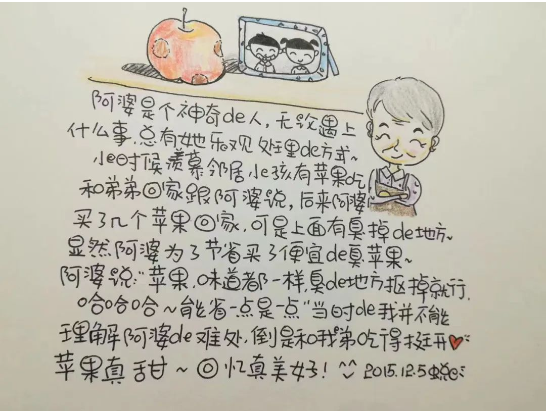 阿婆是个神奇de人,无论遇上
什么事,总有她乐观处理de方式~
小de时候羡慕邻居小孩有苹果吃
和弟弟回家跟阿婆说,后来阿婆
买了几个苹果回家,可是上面有臭掉de地方~
显然阿婆为了节省买了便宜de臭苹果~
阿婆说:"苹果,味道都一样,臭de地方抠掉就行,
哈哈哈~能省一点是一点"当时de我并不能
理解阿婆de难处,倒是和我弟吃得挺开❤
苹果真甜~回忆真美好! 2015.12.5